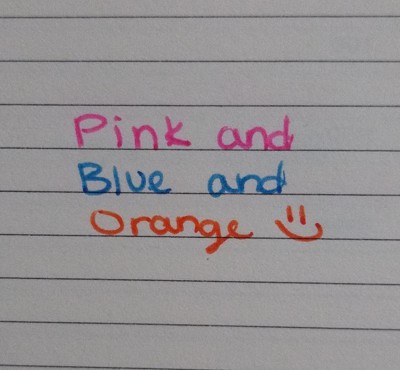 Pink and
Blue and
Orange =)